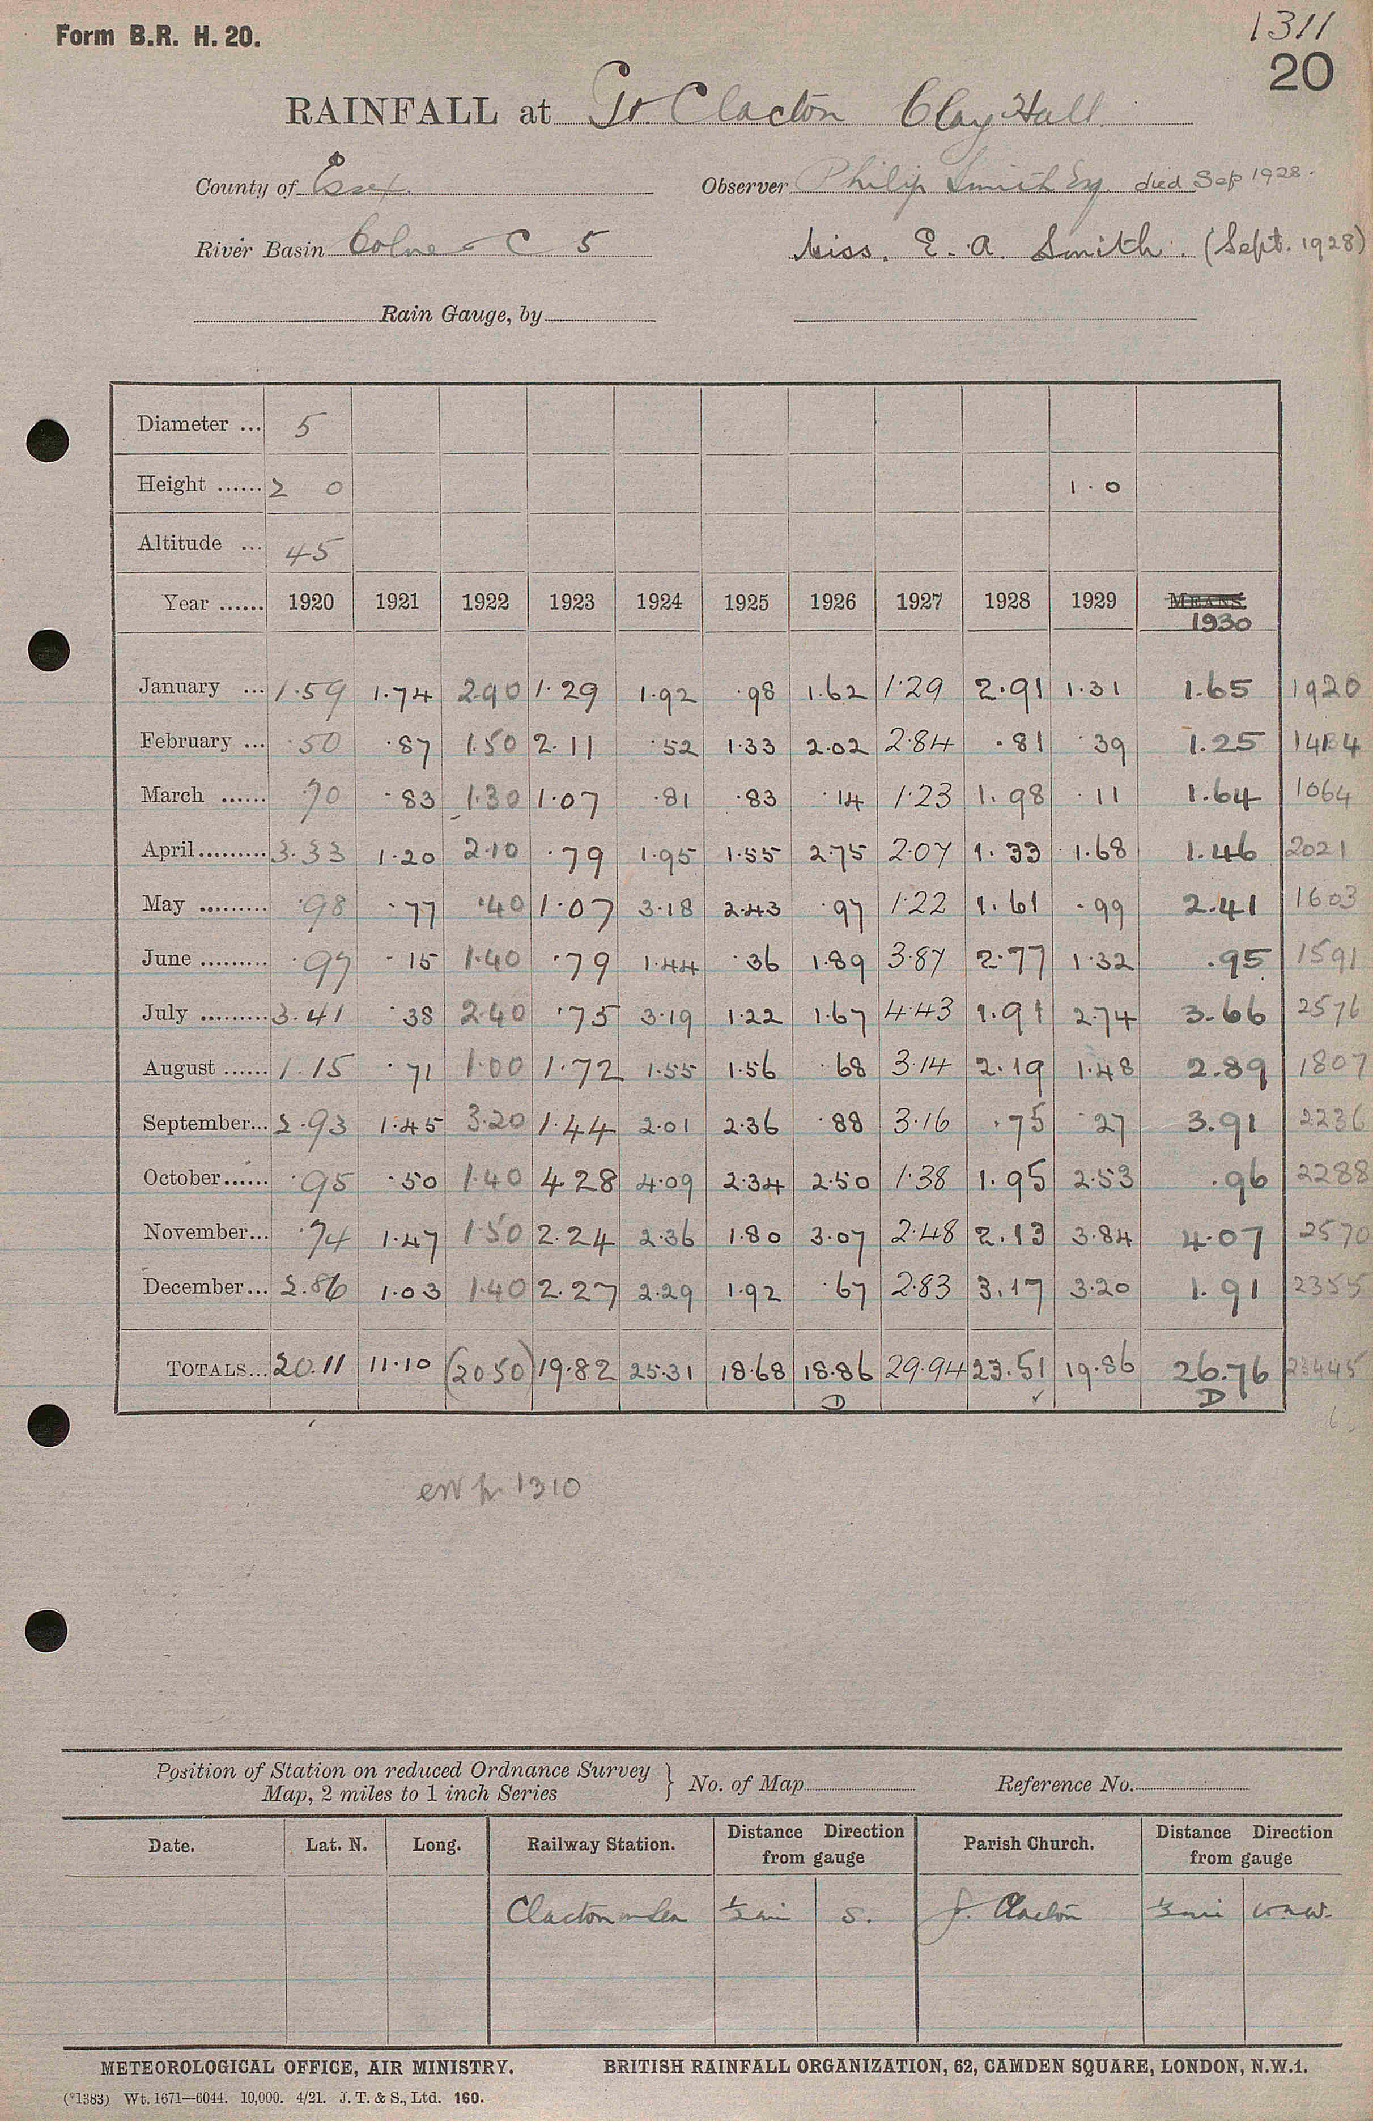 Form B.R. H. 20.
1311
20
RAINFALL at Gt. Clacton Clay Hall
County of Essex Observer Philip Smith Esq. died Sep 1928.
River Basin Colne C 5 Miss. E. A. Smith. (Sept. 1928)
Rain Gauge, by
Diameter ... 5
Height ...... 2 0 1.0
Altitude ... 45
Year ...... 1920 1921 1922 1923 1924 1925 1926 1927 1928 1929 MEANS.
1930
January ... 1.59 1.74 2.90 1.29 1.92 .98 1.62 1.29 2.91 1.31 1.65 1920
February ... .50 .87 1.50 2.11 .52 1.33 2.02 2.84 .81 .39 1.25
March ...... .70 .83 1.30 1.07 .81 .83 .14 1.23 1.98 .11 1.64 1064
April ......... 3.33 1.20 2.10 .79 1.95 1.55 2.75 2.07 1.33 1.68 1.46 2021
May ......... .98 .77 .40 1.07 3.18 2.43 .97 1.22 1.61 .99 2.41 1603
June ......... .97 .15 1.40 .79 1.44 .36 1.89 3.87 2.77 1.32 .95 1591
July ......... 3.41 .38 2.40 .75 3.19 1.22 1.67 4.43 1.91 2.74 3.66 2576
August ...... 1.15 .71 1.00 1.72 1.55 1.56 .68 3.14 2.19 1.48 2.89 1807
September... 2.93 1.45 3.20 1.44 2.01 2.36 .88 3.16 .75 .27 3.91 2236
October...... .95 .50 1.40 4.28 4.09 2.34 2.50 1.38 1.95 2.53 .96 2288
November... .74 1.47 1.50 2.24 2.36 1.80 3.07 2.48 2.13 3.84 4.07 2570
December... 2.86 1.03 1.40 2.27 2.29 1.92 .67 2.83 3.17 3.20 1.91 2355
TOTALS... 20.11 11.10 (20.50) 19.82 25.31 18.68 18.86 29.94 23.51 19.86 26.76 23445
D ✓ D
1310
Position of Station on reduced Ordnance Survey
Map, 2 miles to 1 inch Series } No. of Map Reference No.
Date. Lat. N. Long. Railway Station. Distance Direction from gauge Parish Church. Distance Direction from gauge
Clacton on Sea ½ mi S. Clacton ⅓ mi W.N.W.
METEOROLOGICAL OFFICE, AIR MINISTRY. BRITISH RAINFALL ORGANIZATION, 62, CAMDEN SQUARE, LONDON, N.W.1.
(*1383) Wt. 1671—6044. 10,000. 4/21. J. T. & S., Ltd. 160.